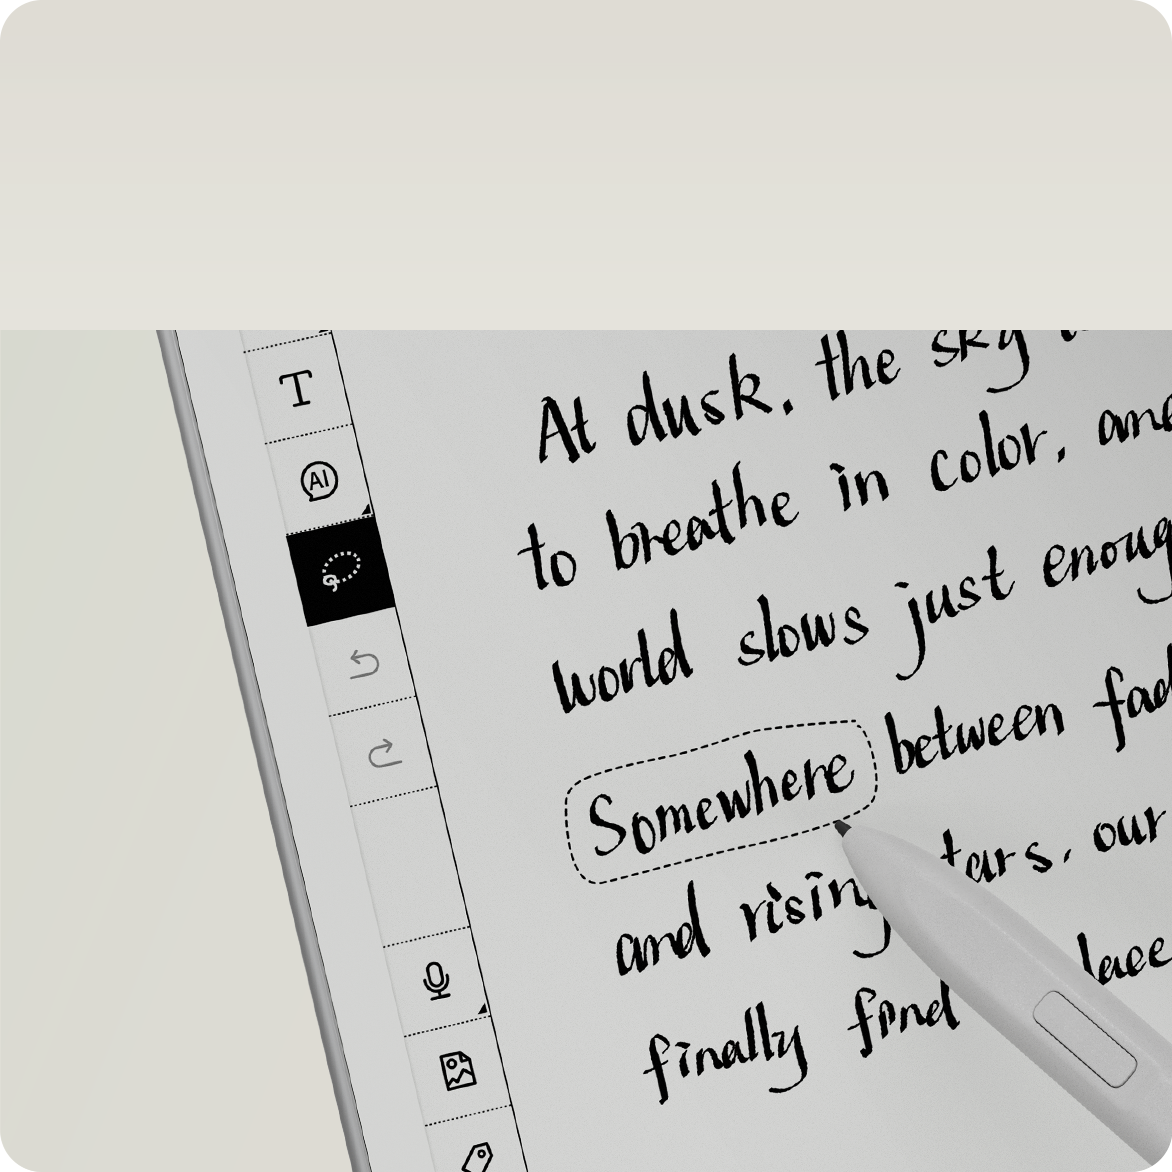 T
AI
At dusk, the sky
to breathe in color, and
world slows just enoug
Somewhere between fad
and rising tars, our
finally find lace